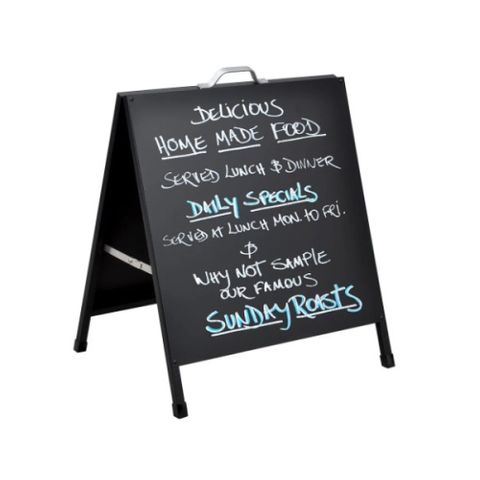 DELICIOUS
HOME MADE FOOD
SERVED LUNCH & DINNER
DAILY SPECIALS
SERVED AT LUNCH MON. TO FRI.
&
WHY NOT SAMPLE
OUR FAMOUS
SUNDAY ROASTS